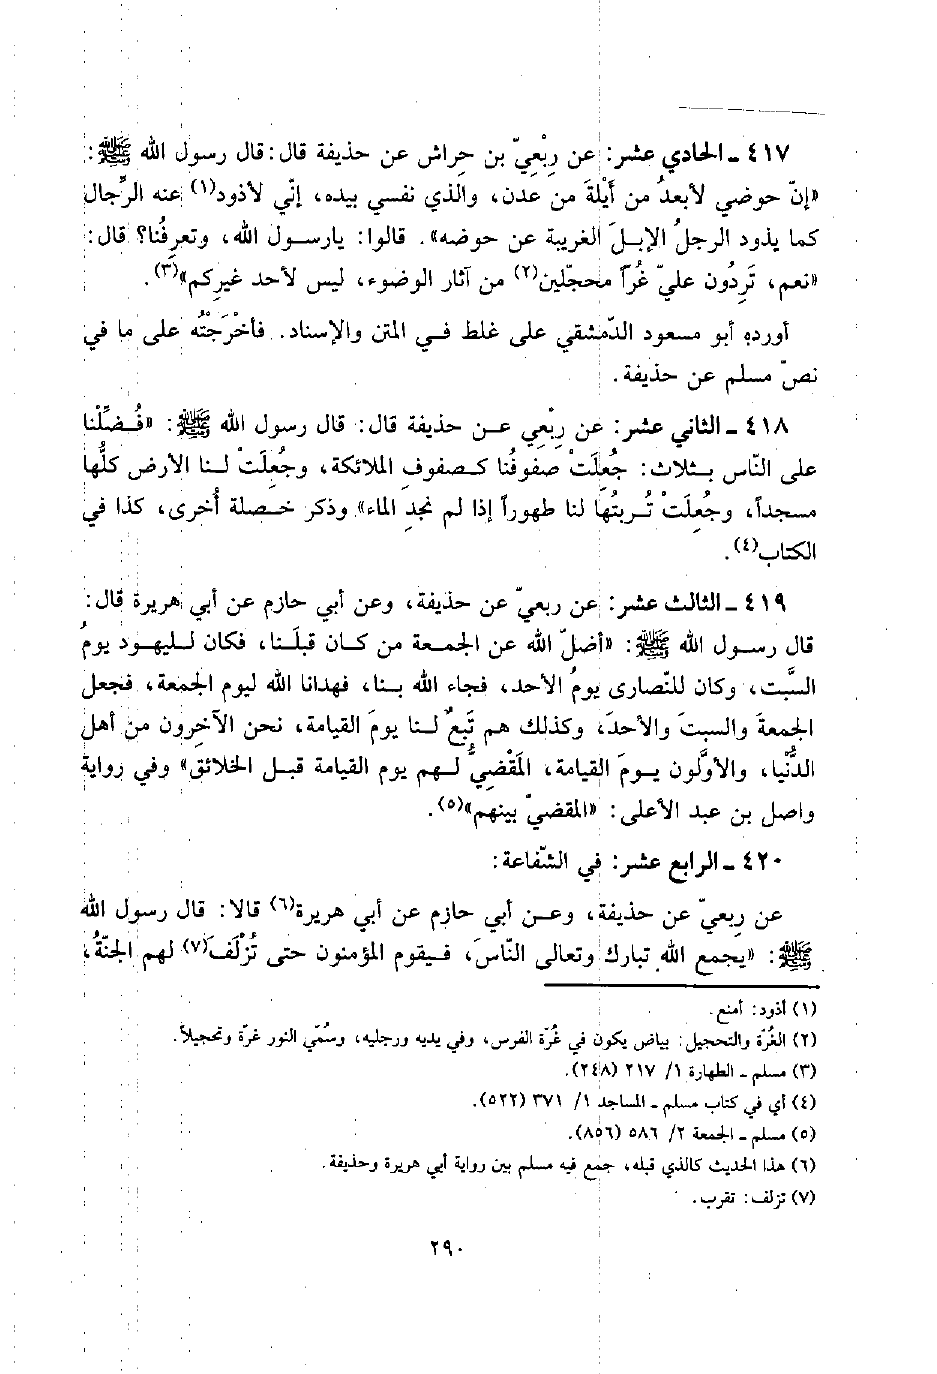 ٤١٧ ـ الحادي عشر: عن رِبْعيّ بن حِراش عن حذيفة قال: قال رسول الله ﷺ:
«إنّ حوضي لأبعدُ من أَيْلَةَ من عدن، والذي نفسي بيده، إنّي لأذود(١) عنه الرِّجال
كما يذود الرجلُ الإبلَ الغريبة عن حوضه». قالوا: يارسول الله، وتعرِفُنا؟ قال:
«نعم، تَرِدُون عليّ غُراً محجّلين(٢) من آثار الوضوء، ليس لأحد غيرِكم»(٣).
أورده أبو مسعود الدّمشقي على غلط في المتن والإسناد. فأخْرَجْتُه على ما في
نصّ مسلم عن حذيفة.
٤١٨ ـ الثاني عشر: عن رِبْعي عن حذيفة قال: قال رسول الله ﷺ: «فُضِّلْنا
على النّاس بثلاث: جُعِلَتْ صفوفُنا كصفوفِ الملائكة، وجُعِلَتْ لنا الأرض كلُّها
مسجداً، وجُعِلَتْ تُربتُها لنا طهوراً إذا لم نجدِ الماء» وذكر خصلة أُخرى، كذا في
الكتاب(٤).
٤١٩ ـ الثالث عشر: عن ربعيّ عن حذيفة، وعن أبي حازم عن أبي هريرة قال:
قال رسول الله ﷺ: «أضلّ الله عن الجمعة من كان قبلَنا، فكان لليهود يومُ
السَّبت، وكان للنّصارى يومُ الأحد، فجاء الله بنا، فهدانا الله ليوم الجمعة، فجعل
الجمعةَ والسبتَ والأحدَ، وكذلك هم تَبَعٌ لنا يومَ القيامة، نحن الآخِرون من أهل
الدُّنيا، والأوَّلون يومَ القيامة، المَقْضيُّ لهم يوم القيامة قبل الخلائق» وفي رواية
واصل بن عبد الأعلى: «المقضيّ بينهم»(٥).
٤٢٠ ـ الرابع عشر: في الشّفاعة:
عن رِبعيّ عن حذيفة، وعن أبي حازم عن أبي هريرة(٦) قالا: قال رسول الله
ﷺ: «يجمع الله تبارك وتعالى النّاسَ، فيقوم المؤمنون حتى تُزْلَفَ(٧) لهم الجنّةُ،
(١) أذود: أمنع.
(٢) الغُرّة والتحجيل: بياض يكون في غُرّة الفرس، وفي يديه ورجليه، وسُمّي النور غرّة وتحجيلاً.
(٣) مسلم ـ الطهارة ١/ ٢١٧ (٢٤٨).
(٤) أي في كتاب مسلم ـ المساجد ١/ ٣٧١ (٥٢٢).
(٥) مسلم ـ الجمعة ٢/ ٥٨٦ (٨٥٦).
(٦) هذا الحديث كالذي قبله، جمع فيه مسلم بين رواية أبي هريرة وحذيفة.
(٧) تزلف: تقرب.
٢٩٠